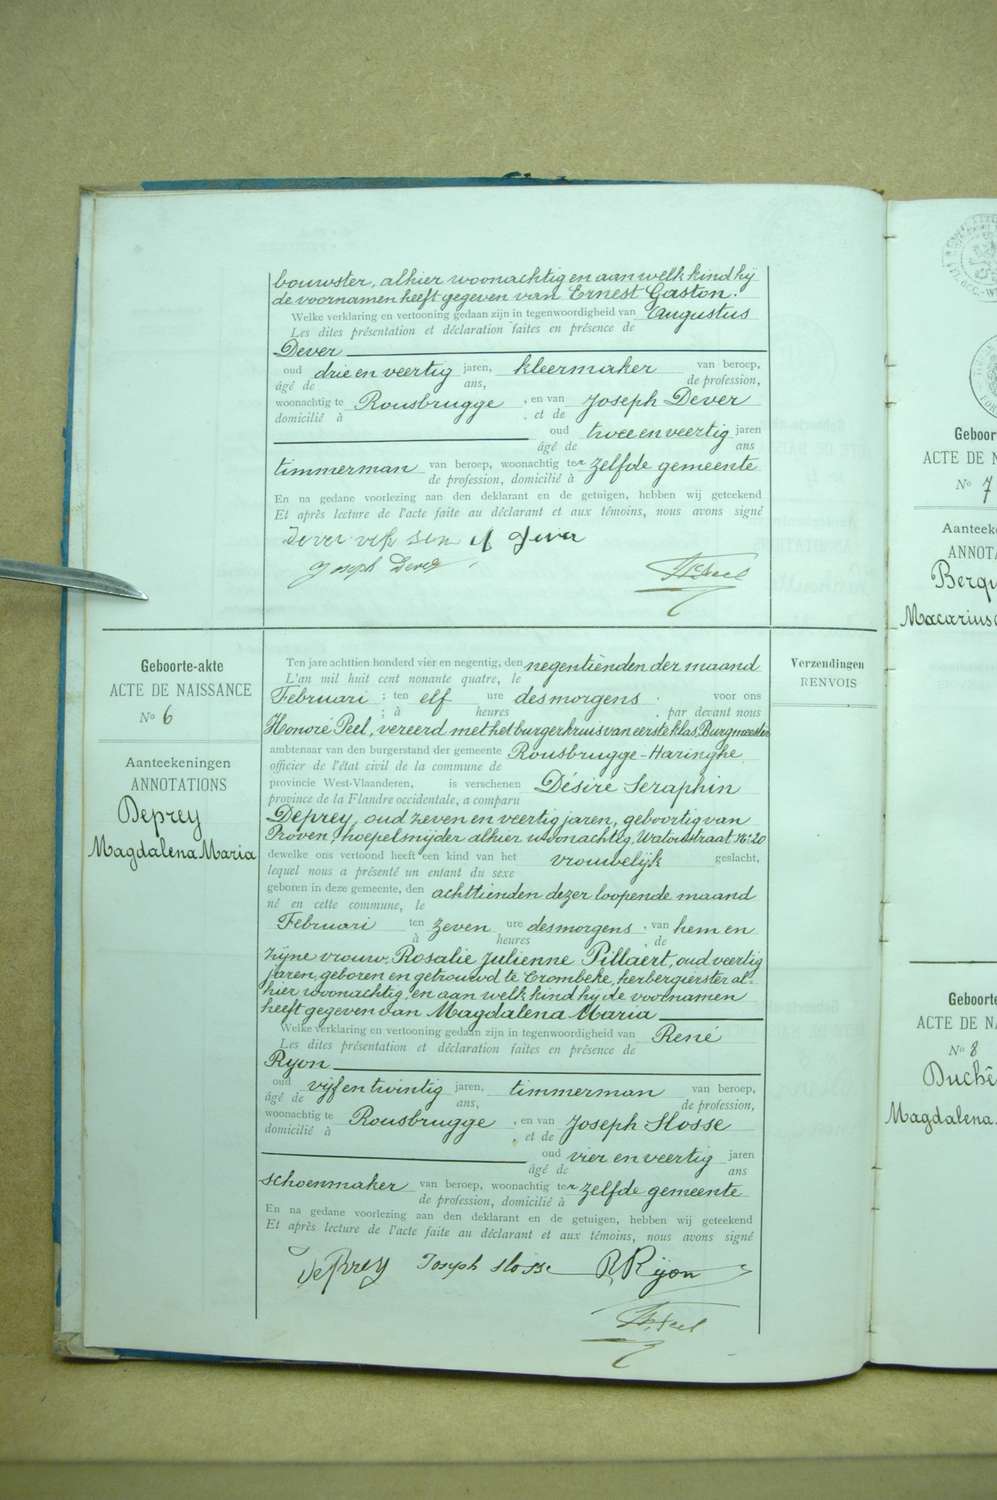 bouwster, alhier woonachtig en aan welk kind hij
de voornamen heeft gegeven van Ernest Gaston.
Welke verklaring en vertooning gedaan zijn in tegenwoordigheid van Augustus
Les dites présentation et déclaration faites en présence de
Dever
oud drie en veertig jaren, kleermaker van beroep,
âgé de ans, de profession,
woonachtig te Rousbrugge, en van Joseph Dever
domicilié à et de
oud twee en veertig jaren
âgé de ans
timmerman van beroep, woonachtig ter zelfde gemeente
de profession, domicilié à
En na gedane voorlezing aan den deklarant en de getuigen, hebben wij geteekend
Et après lecture de l'acte faite au déclarant et aux témoins, nous avons signé
Dever
Joseph Dever
Peel
Geboorte-akte
ACTE DE NAISSANCE
No 6
Aanteekeningen
ANNOTATIONS
Deprey
Magdalena Maria
Ten jare achttien honderd vier en negentig, den negentienden der maand
L'an mil huit cent nonante quatre, le
Februari ; ten elf ure des morgens voor ons
; à heures , par devant nous
Honoré Peel, vereerd met het burgerkruis van eerste klas, Burgmeester
ambtenaar van den burgerstand der gemeente Rousbrugge-Haringhe
officier de l'état civil de la commune de
provincie West-Vlaanderen, is verschenen Désiré Seraphin
province de la Flandre occidentale, a comparu
Deprey, oud zeven en veertig jaren, geboortig van
Proven, hoepelsnijder alhier woonachtig, Watoustraat No 20
dewelke ons vertoond heeft een kind van het vrouwelijk geslacht,
lequel nous a présenté un enfant du sexe
geboren in deze gemeente, den achttienden dezer loopende maand
né en cette commune, le
Februari ten zeven ure des morgens, van hem en
à heures , de
zijne vrouw, Rosalie Julienne Pillaert, oud veertig
jaren, geboren en getrouwd te Crombeke, herbergierster al-
hier woonachtig, en aan welk kind hij de voornamen
heeft gegeven van Magdalena Maria
Welke verklaring en vertooning gedaan zijn in tegenwoordigheid van René
Les dites présentation et déclaration faites en présence de
Ryon
oud vijf en twintig jaren, timmerman van beroep,
âgé de ans, de profession,
woonachtig te Rousbrugge, en van Joseph Slosse
domicilié à , et de
oud vier en veertig jaren
âgé de ans
schoenmaker van beroep, woonachtig ter zelfde gemeente
de profession, domicilié à
En na gedane voorlezing aan den deklarant en de getuigen, hebben wij geteekend
Et après lecture de l'acte faite au déclarant et aux témoins, nous avons signé
DePrey Joseph Slosse R. Rijon
Peel
Verzendingen
RENVOIS
Geboort
ACTE DE N
No 7
Aanteek
ANNOTA
Berqu
Macarius
Geboorte
ACTE DE NA
No 8
Duchê
Magdalena